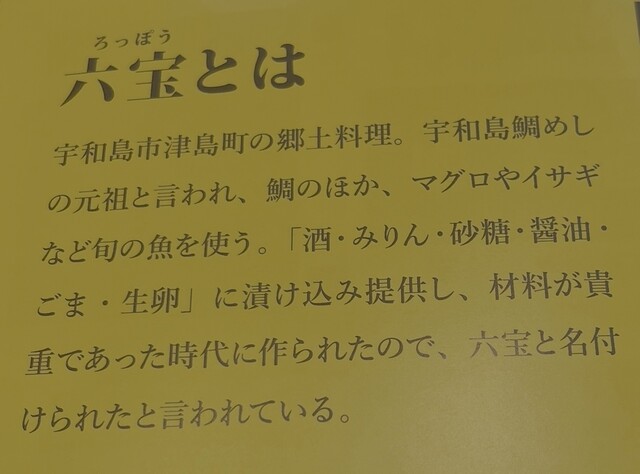 ろっぽう
六宝とは
宇和島市津島町の郷土料理。宇和島鯛めし
の元祖と言われ、鯛のほか、マグロやイサギ
など旬の魚を使う。「酒・みりん・砂糖・醤油・
ごま・生卵」に漬け込み提供し、材料が貴
重であった時代に作られたので、六宝と名付
けられたと言われている。